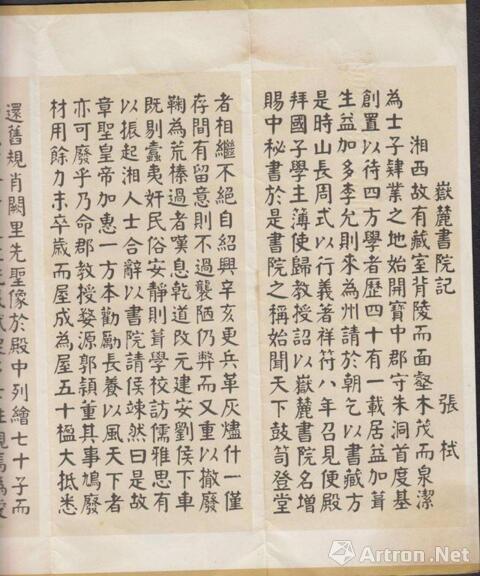 嶽麓書院記 張栻
湘西故有藏室背陵而面壑木茂而泉潔
為士子肄業之地始開寶中郡守朱洞首度基
創置以待四方學者歷四十有一載居益加葺
生益加多李允則來為州請於朝乞以書藏方
是時山長周式以行義著祥符八年召見便殿
拜國子學主簿使歸教授詔以嶽麓書院名增
賜中秘書於是書院之稱始聞天下鼓笥登堂
者相繼不絕自紹興辛亥更兵革灰燼什一僅
存間有留意則不過襲陋仍弊而又重以撤廢
鞠為荒榛過者嘆息乾道改元建安劉侯下車
既剔蠹夷奸民俗安靜則葺學校訪儒雅思有
以振起湘人士合辭以書院請侯竦然曰是故
章聖皇帝加惠一方本勸勵長養以風天下者
亦可廢乎乃命郡教授婺源郭穎董其事鳩廢
材用餘力未卒歲而屋成為屋五十楹大抵悉
還舊規肖闕里先聖像於殿中列繪七十子而
Artron.Net